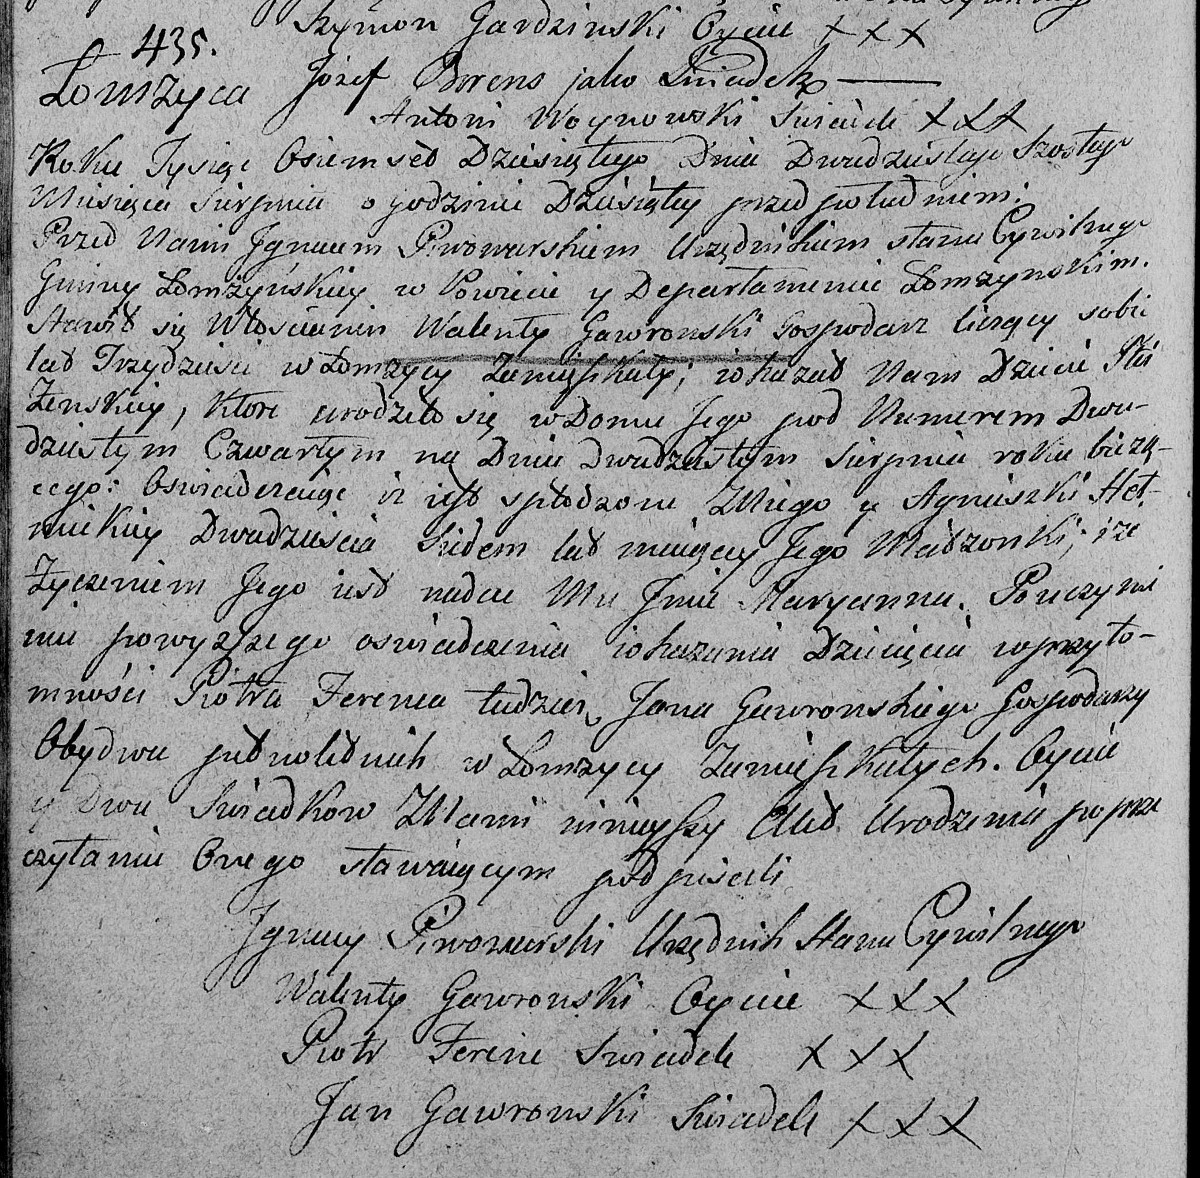 Szymon Gardzinski Oyciec XXX
435.
Łomżyca
Józef Brrens jako Świadek
Antoni Woynowski Swiadek XXX
Roku Tysiąc Osiemset Dziesiątego Dnia Dwudziestego Szostego
Miesiąca Sierpnia o godzinie Dziesiątey przed południem.
Przed Nami Jgnacem Piwowarskiem Urzędnikiem stanu Cywilnego
Gminy Łomżyńskiey w Powiecie y Departamencie Łomżynskim.
Stawił się Włoscianin Walenty Gawronski Gospodarz liczący sobie
lat Trzydzieści w Łomzycy Zamięszkały; iokazał Nam Dziecie Płci
Zenskiey, które urodziło się w Domu Jego pod Numerem Dwu-
dziestym Czwartym na Dniu dwudziestym Sierpnia roku bieżą-
cego: Oswiadczaiąc iż iest spłodzone Zniego y Agnieszki Heł-
mickiey Dwadzieścia Siedem lat maiącey Jego Małżonki; iże
Życzeniem Jego iest nadać Mu Jmie Maryanna. Po uczynie
niu powyższego oswiadczenia iokazania Dziecięcia w przyto-
mności Piotra Ferenca tudzież Jana Gawronskiego Gospodarzy
Obydwu pełnoletnich w Łomzycy Zamięszkałych. Oyciec
y Dwu Świadków ZNami ninieyszy Akt Urodzenia po prze
czytaniu Onego stawaiącym podpisali
Jgnacy Piwowarski Urzędnik Stanu Cywilnego
Walenty Gawronski Oyciec XXX
Piotr Ferenc Swiadek XXX
Jan Gawronski Swiadek XXX